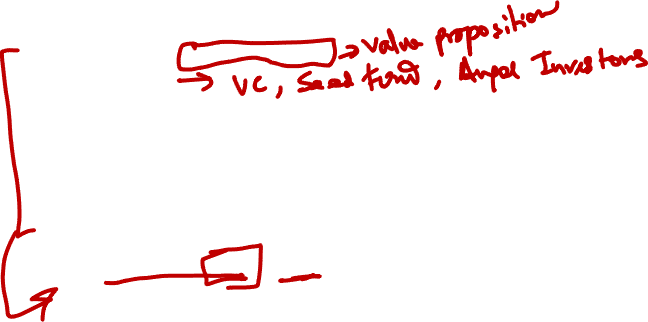 → value proposition
→ VC, Seed Fund, Angel Investors